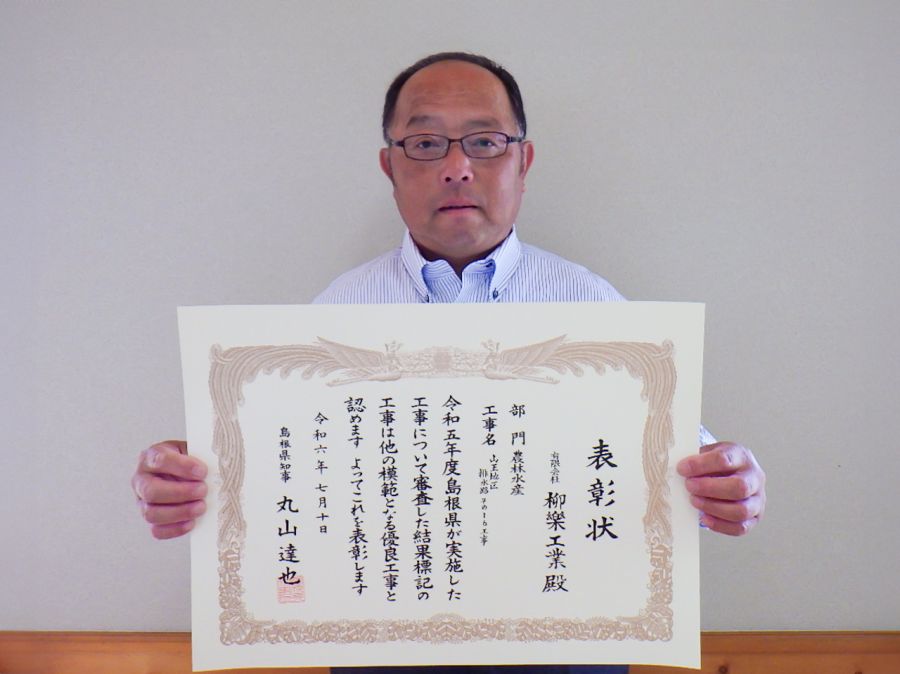 表彰状
有限会社 柳樂工業 殿
部門 農林水産
工事名 山王地区
排水路
工事
令和五年度島根県が実施した
工事について審査した結果標記の
工事は他の模範となる優良工事と
認めます よってこれを表彰します
令和六年 七月十日
島根県知事 丸山達也